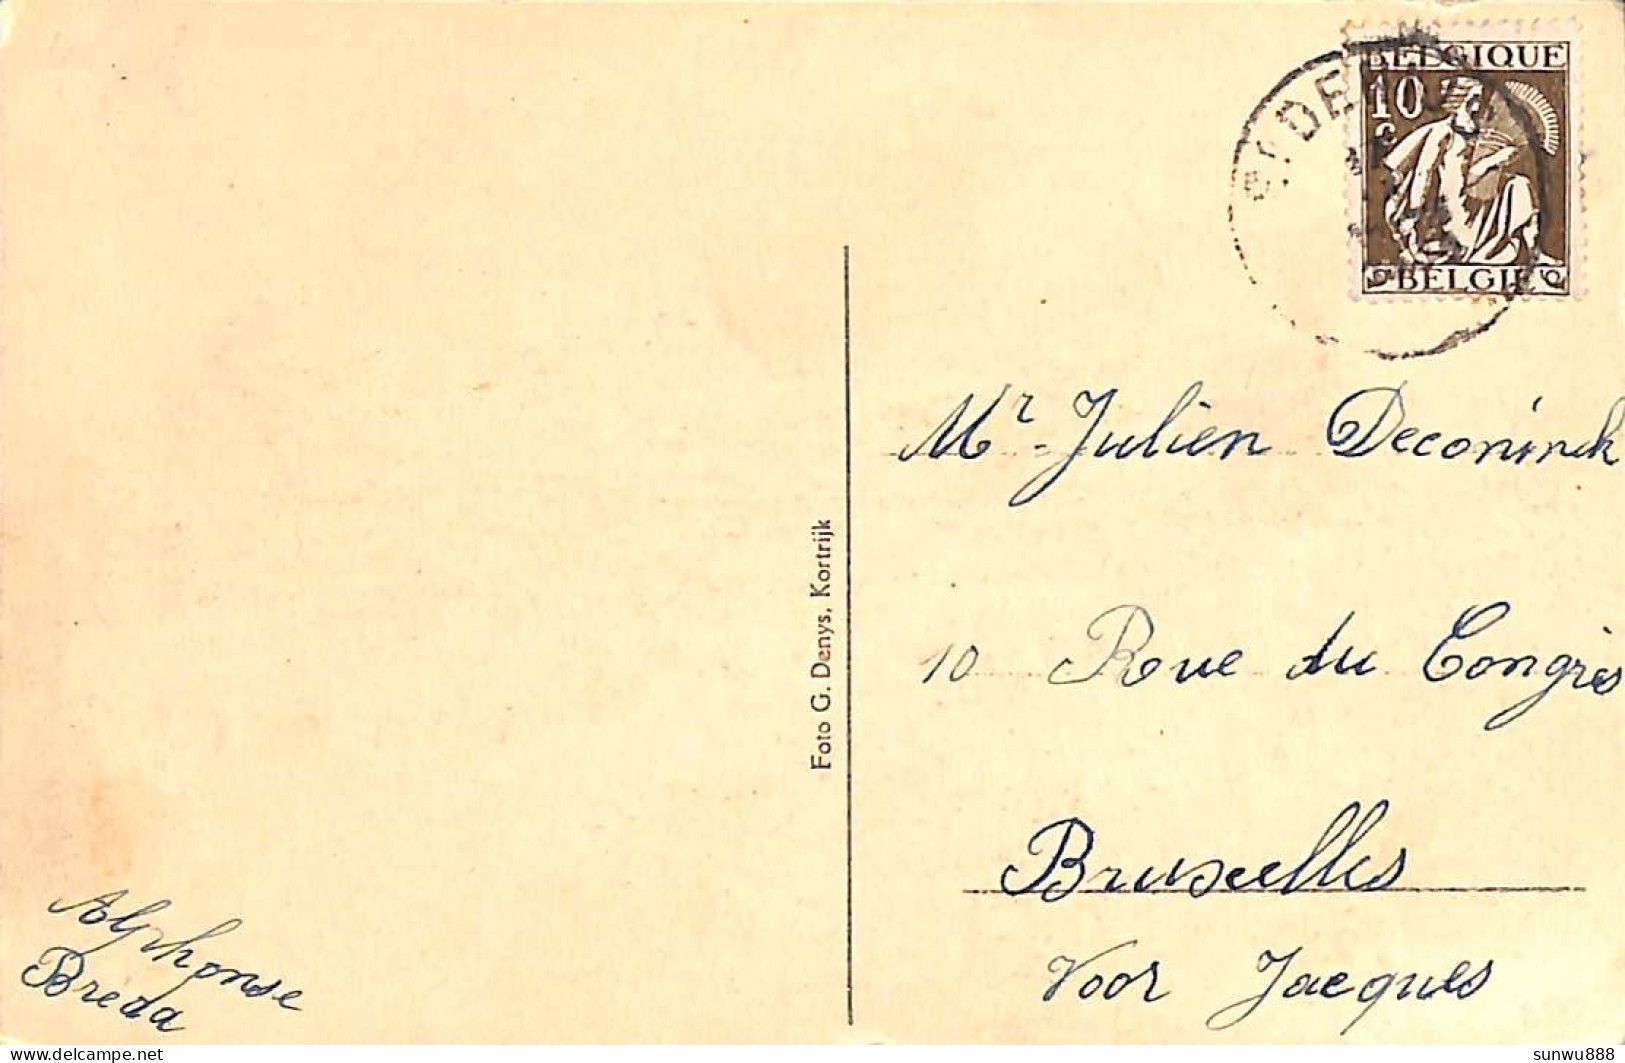 BELGIQUE
10
c
BELGIË
Mr Julien Deconinck
10 Rue du Congrès
Bruxelles
Voor Jacques
Foto G. Denys, Kortrijk
Alphonse
Breda
delcampe.net
sunwu888